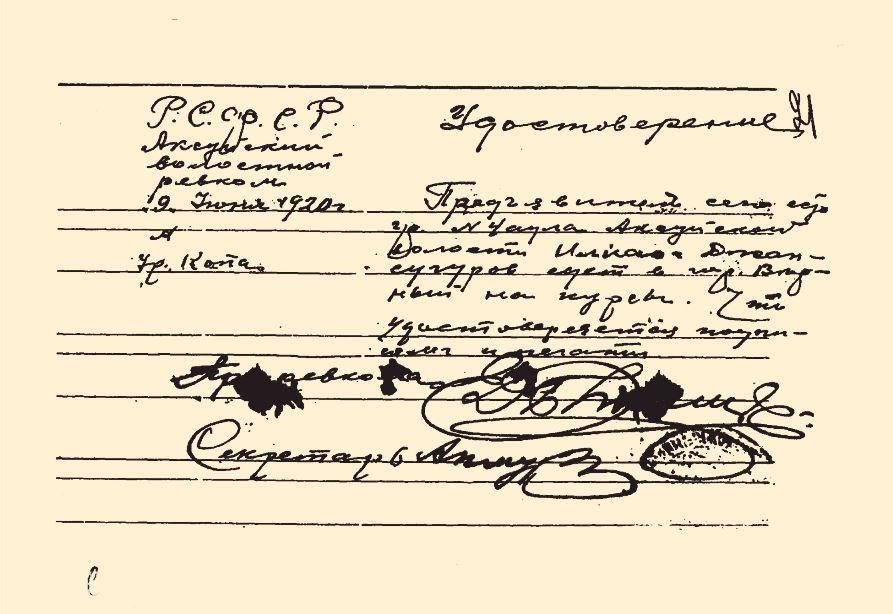 Р. С. Ф. С. Р.
Аксуйский
волостной
ревком
9 Июня 1920 г.
№
Ур. Капа
Удостоверение
Предъявитель сего есть
гр. № аула Аксуйской
волости Ильяс Джан-
сугуров едет в гор. Вер-
ный на курсы. Что
удостоверяется подпи-
сями и печатью
Пр ревкома
Секретарь